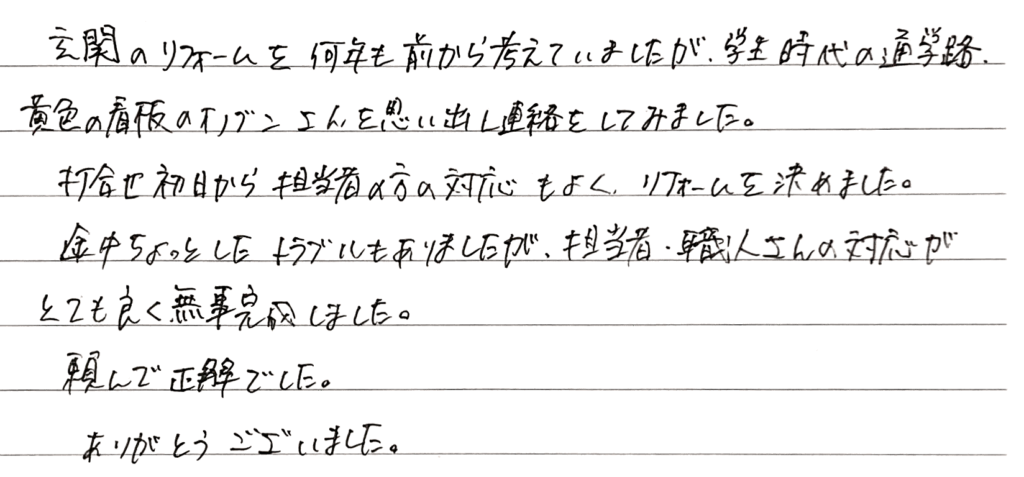 玄関のリフォームを何年も前から考えていましたが、学生時代の通学路、
黄色の看板のオノブンさんを思い出し連絡をしてみました。
打合せ初日から担当者の方の対応もよく、リフォームを決めました。
途中ちょっとしたトラブルもありましたが、担当者・職人さんの対応が
とても良く無事完成しました。
頼んで正解でした。
ありがとうございました。